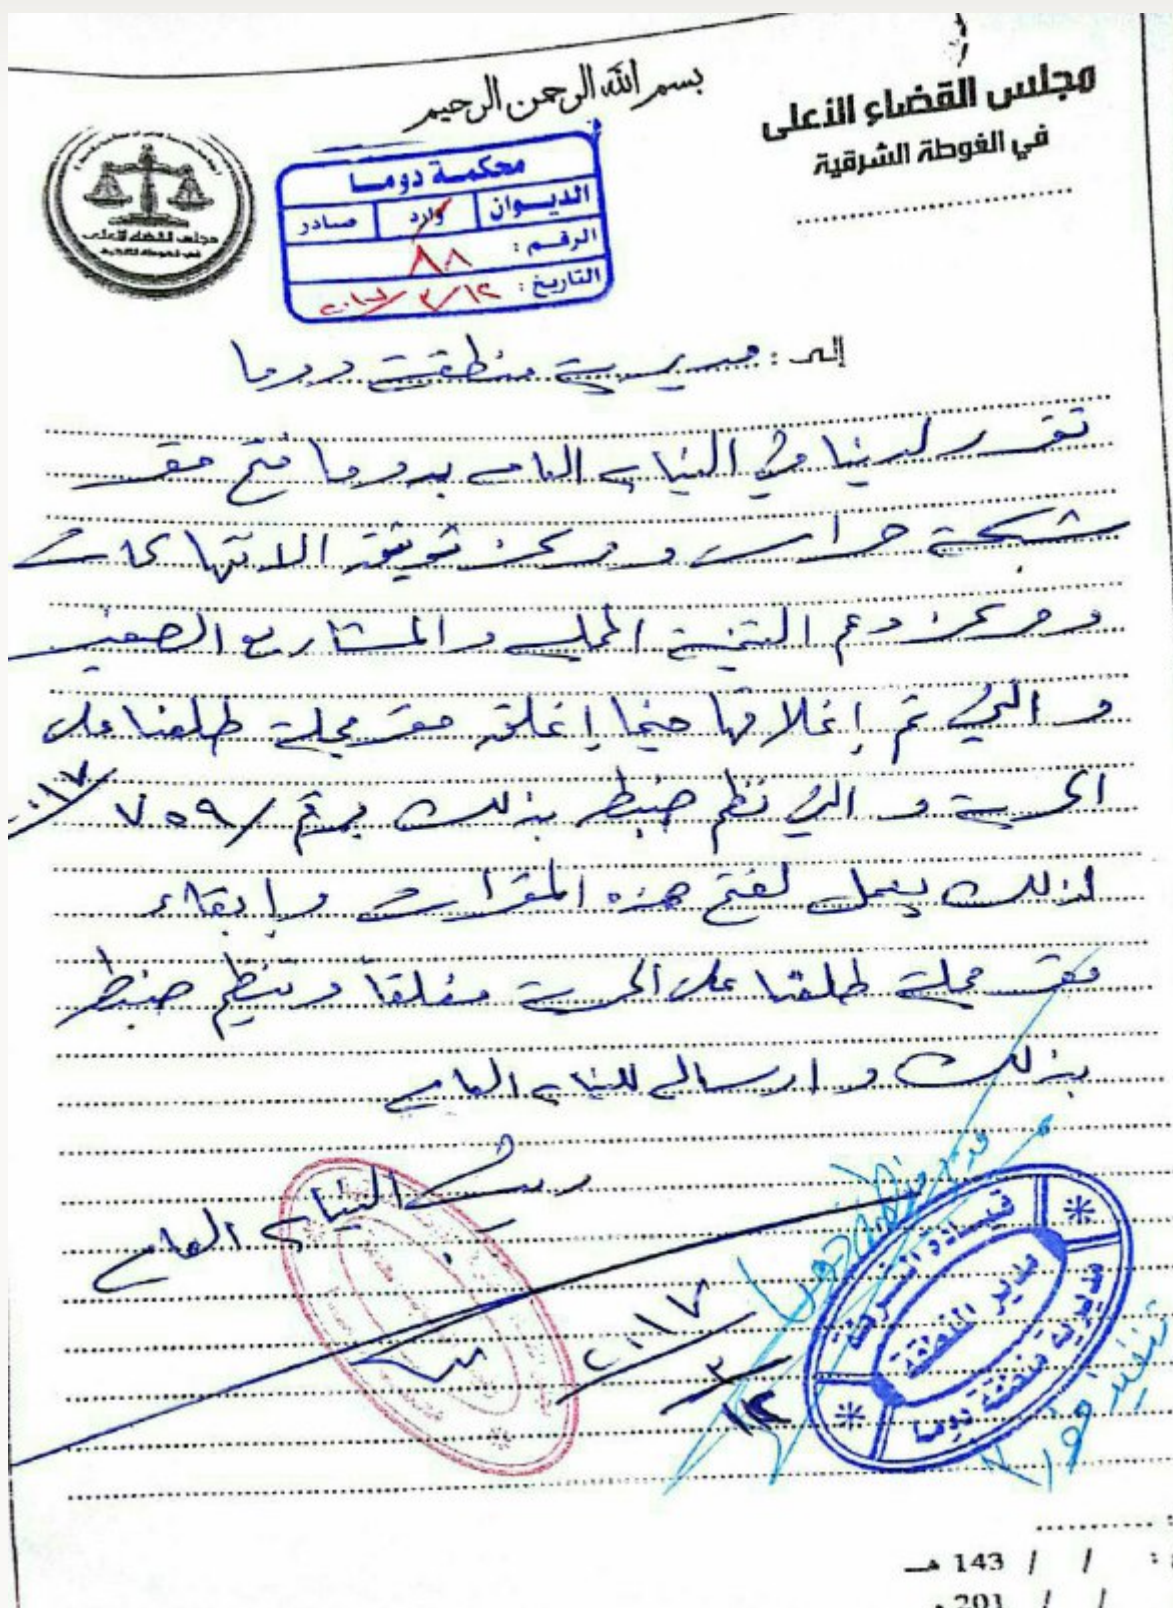 بسم الله الرحمن الرحيم
مجلس القضاء الأعلى
في الغوطة الشرقية
مجلس القضاء الأعلى
في الغوطة الشرقية
محكمة دوما
الديوان وارد صادر
الرقم : ٨٨
التاريخ : ١٢/٣/٢٠١٧
إلى : مديرية منطقة دوما
تقرر لدينا في النيابة العامة بدوما فتح مقر
شبكة حراس ومركز توثيق الانتهاكات
ومركز دعم التنمية المحلية والمشاريع الصغيرة
والتي تم إغلاقها حينما إغلق مقر مجلة طلعنا على
الحرية والتي نظم ضبط بذلك برقم /٧٥٩/ ٢٠١٧
لذلك يعمل لفتح هذه المقرات وإبقاء
مقر مجلة طلعنا على الحرية مغلقاً وتنظيم ضبط
بذلك وارساله للنيابة العامة
رئيس النيابة العامة
٢٠١٧
٣
١٢
قيادة الشرطة
مدير المنطقة
مديرية منطقة دوما
مدير منطقة دوما
143 / / هـ
201 / / م